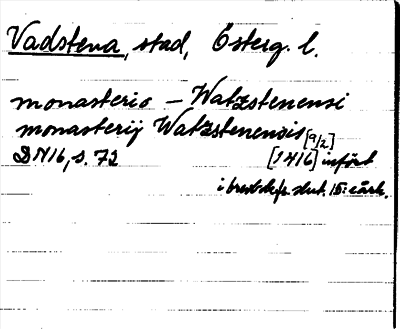 Vadstena, stad, Österg. l.
monasterio – Watzstenensi
monasterij Watzstenensis [9/2]
DN16, s. 72 [1416] infört
i brevbkfr. slut. 15: e årh.